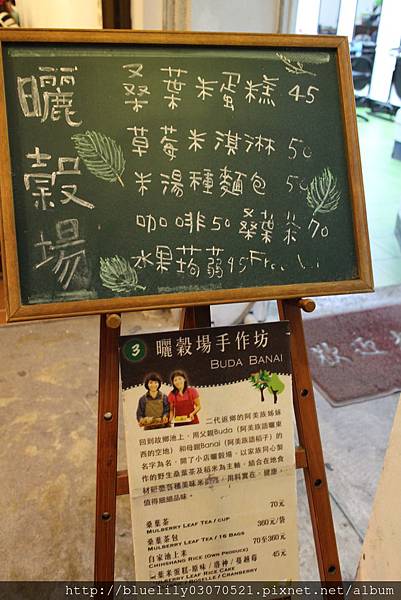 曬穀場
桑葉米蛋糕 45
草莓米淇淋 50
米湯種麵包 50
咖啡50 桑葉茶 70
水果蒟蒻45
3
曬穀場手作坊
BUDA BANAI
二代返鄉的阿美族姊妹
回到故鄉池上，用父親Buda（阿美族語曬東
西的空地）和母親Banai（阿美族語稻子）的
名字為名，開了小店曬穀場，以家族同心製
作的野生桑葉茶及稻米為主軸，結合在地食
值得細細品味。
桑葉茶 70元
MULBERRY LEAF TEA / CUP
桑葉茶包 360元/袋
MULBERRY LEAF TEA / 16 BAGS
自家池上米 70至360元
CHIHSHANG RICE (OWN PRODUCE)
桑葉茶蛋糕-原味/洛神/蔓越莓 45元
MULBERRY LEAF RICE CAKE
ROSELLE / CRANBERRY
http://bluelily03070521.pixnet.net/album